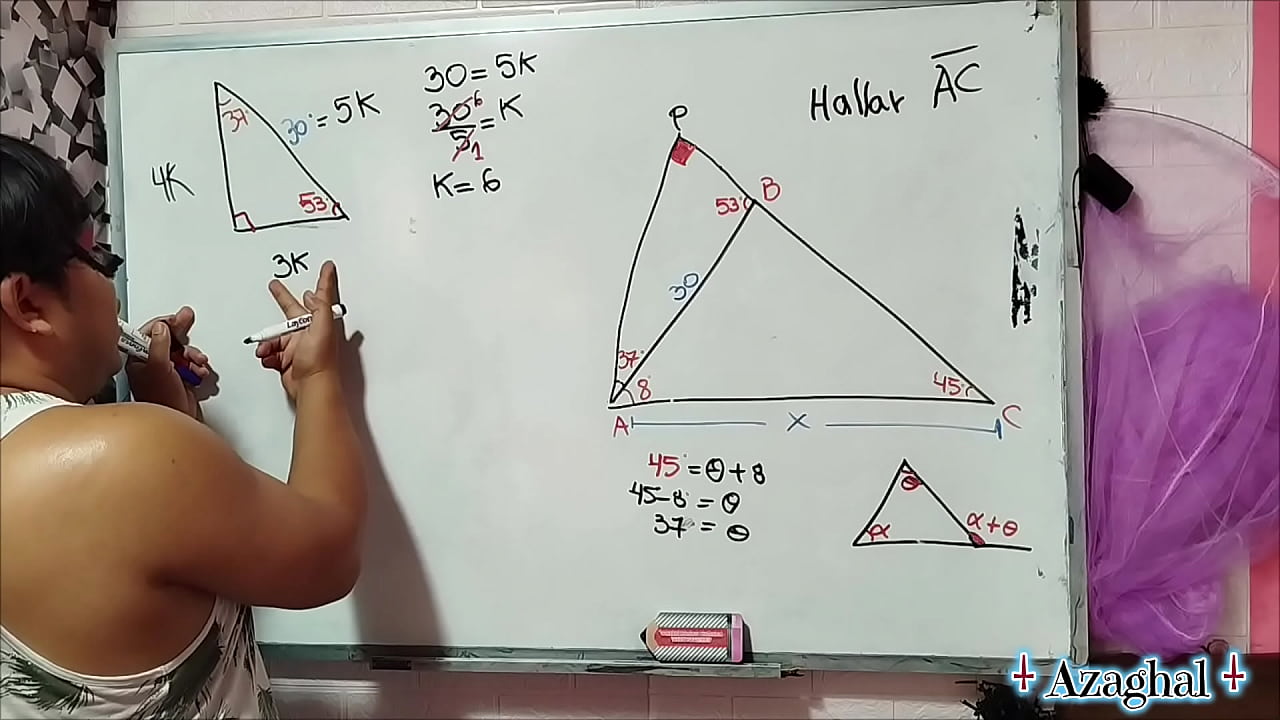 37°
30° = 5K
4K
53°
3K
30 = 5K
30 6
5 1
= K
K = 6
Hallar AC
P
53°
B
30
37°
8
45°
A
x
C
45° = θ + 8
45 - 8° = θ
37° = θ
θ
α
α + θ
Azaghal